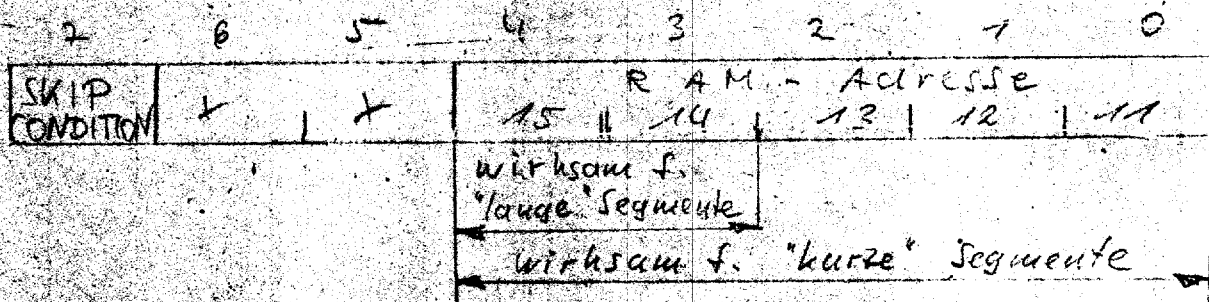 7 6 5 4 3 2 1 0
SKIP CONDITION X X RAM - Adresse
15 14 13 12 11
wirksam f.
"lange" Segmente
wirksam f. "kurze" Segmente